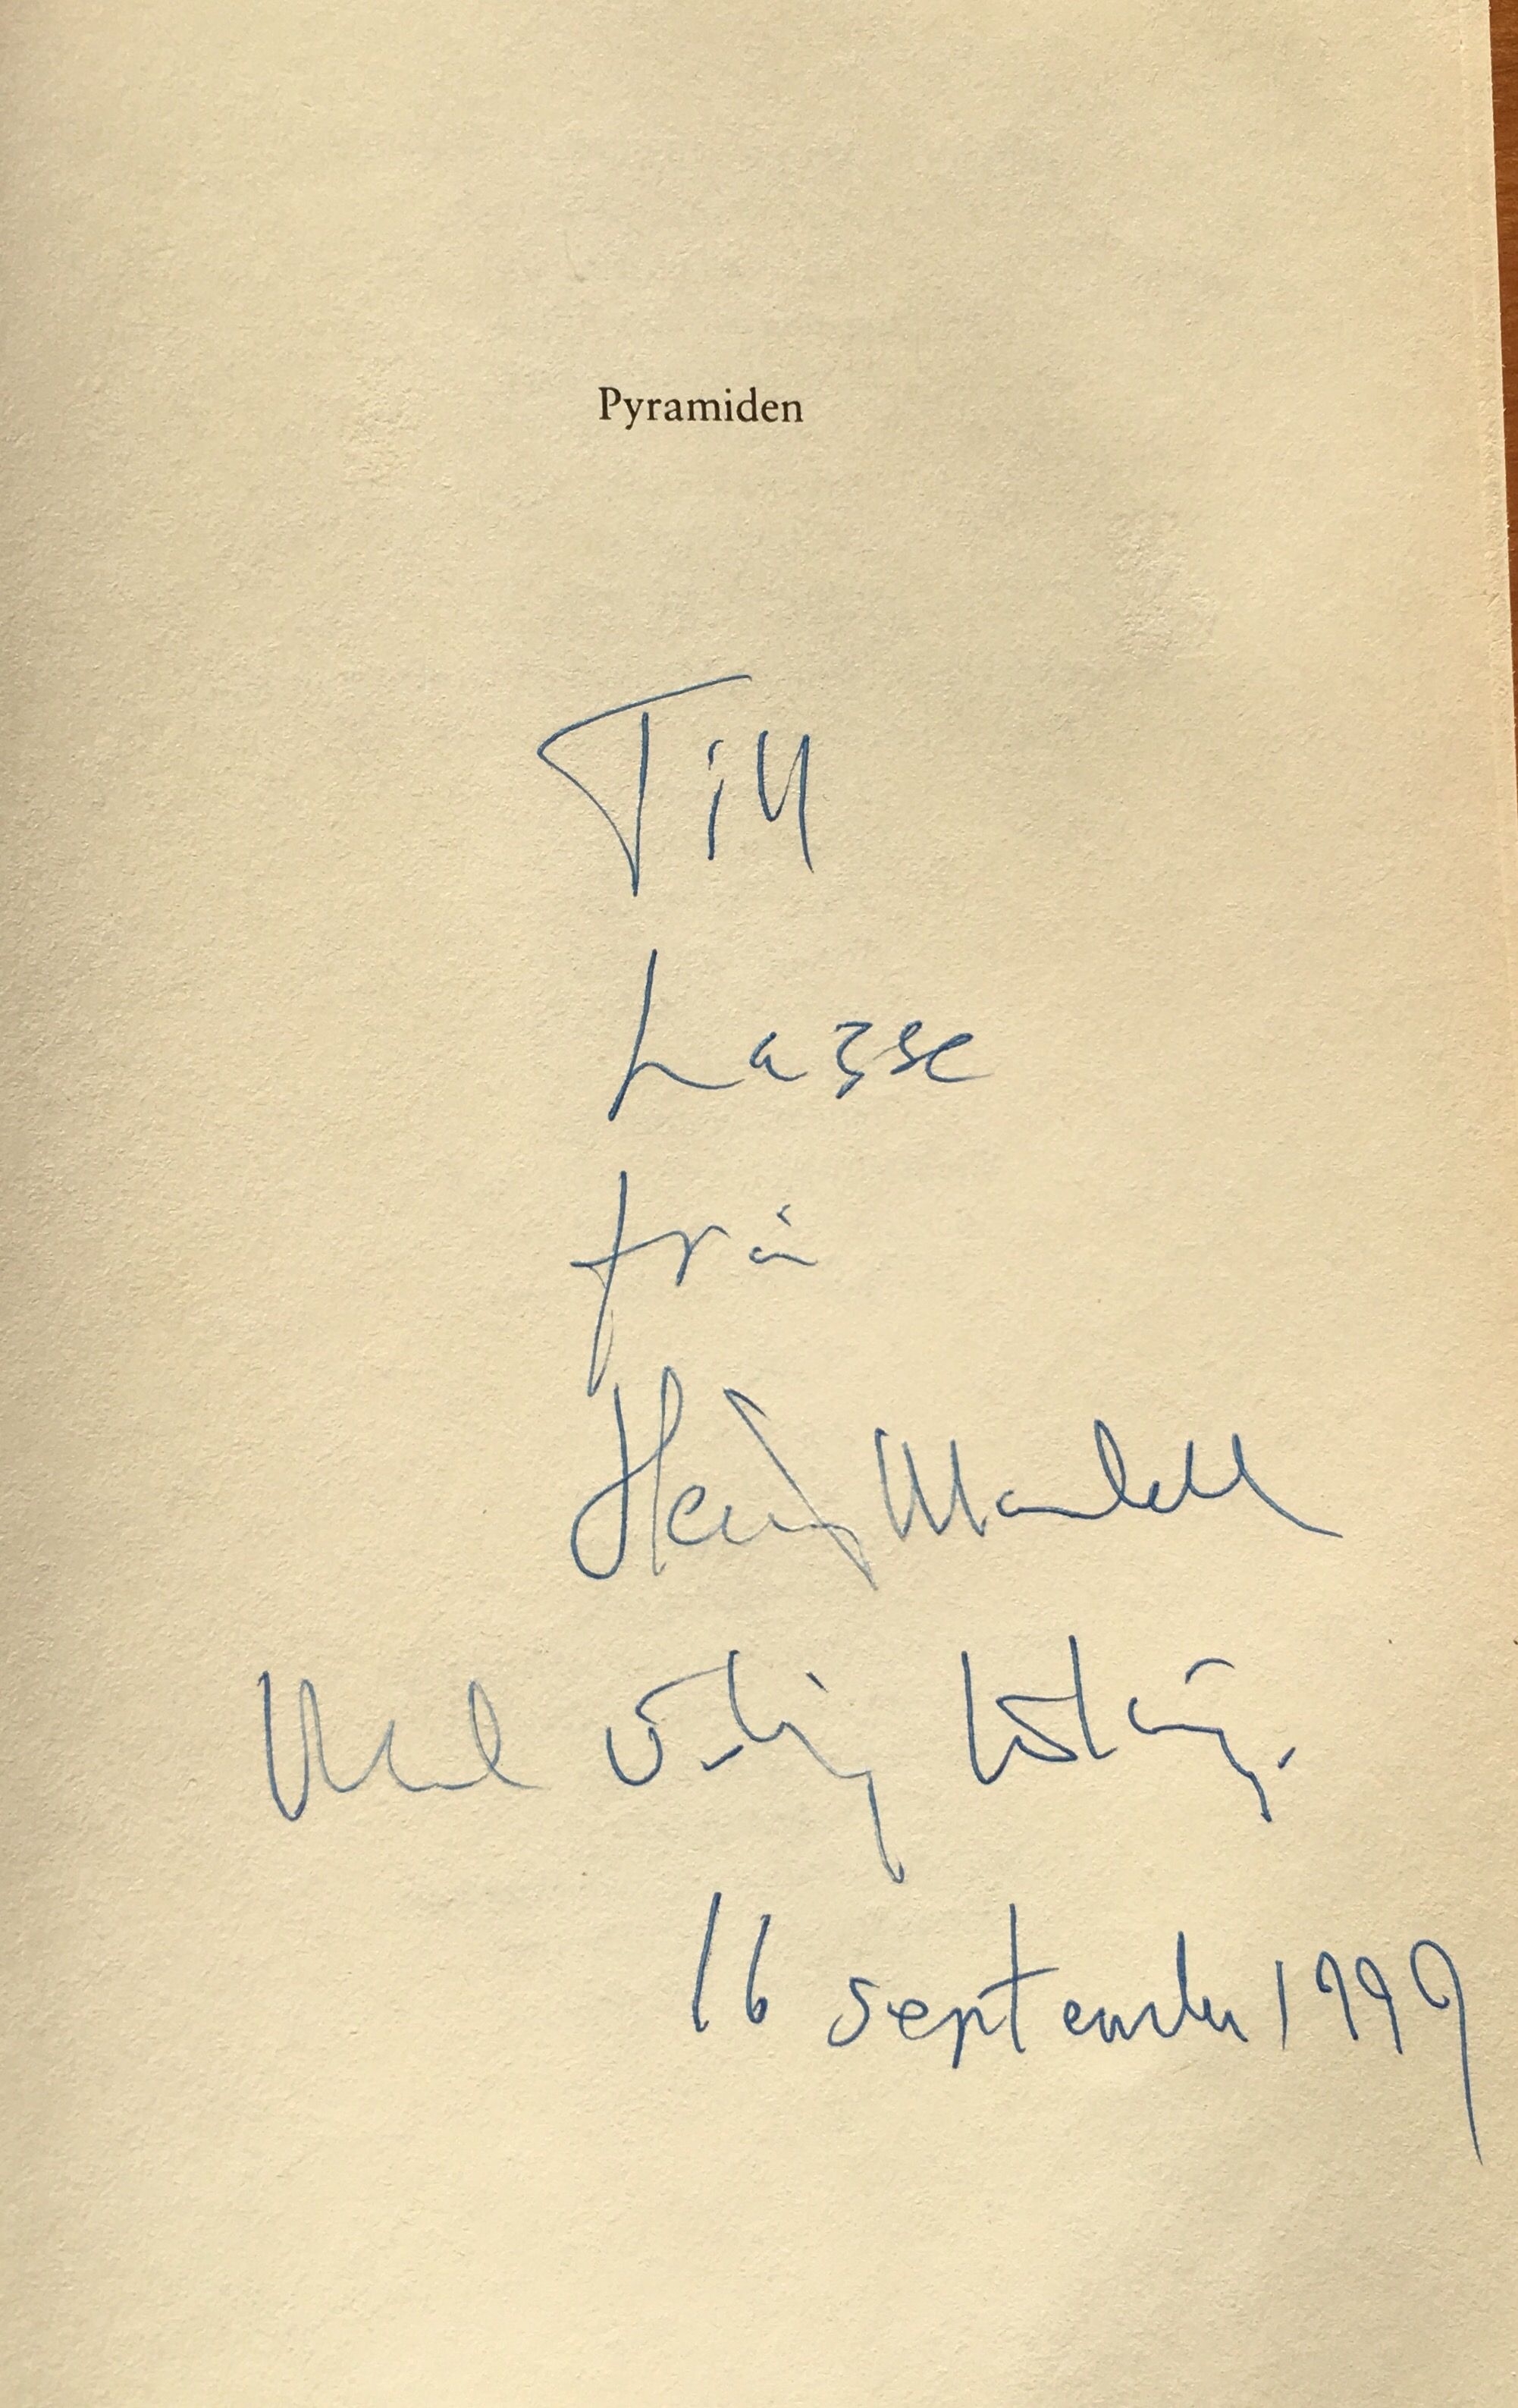 Pyramiden
Till
Lasse
från
Henning Mankell
Med vänlig hälsning.
16 september 1999